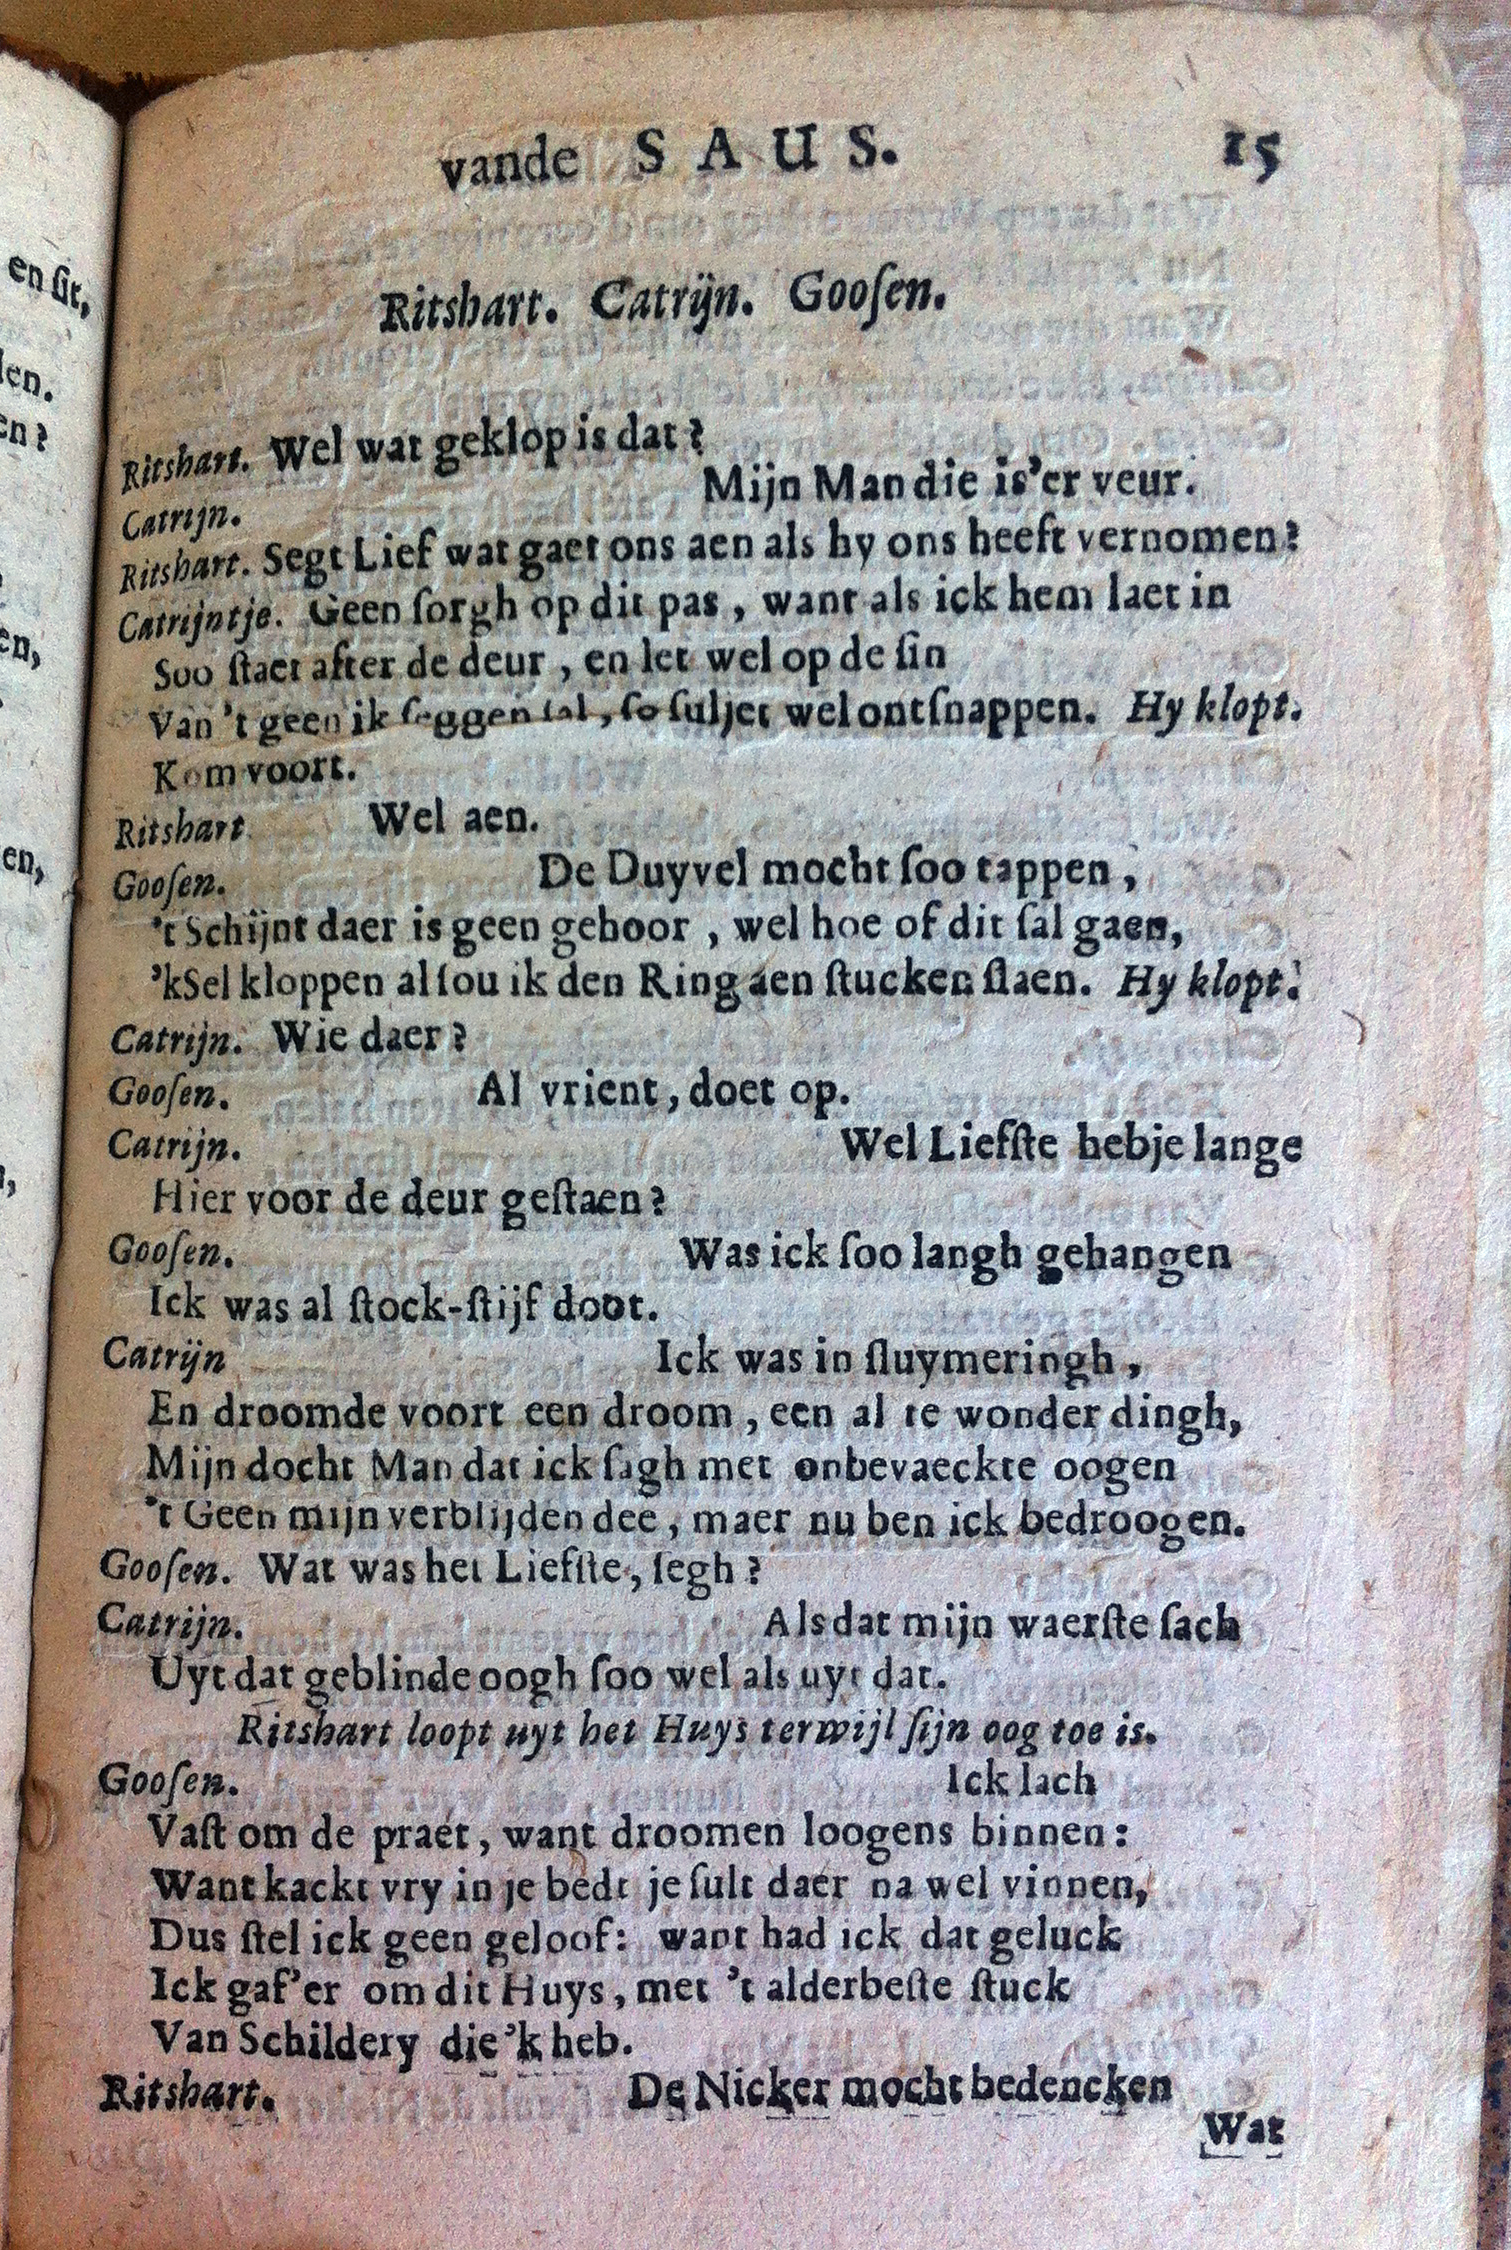 vande SAUS. 15
Ritshart. Catrijn. Gooſen.
Ritshart. Wel wat geklop is dat?
Catrijn. Mijn Man die is'er veur.
Ritshart. Segt Lief wat gaet ons aen als hy ons heeft vernomen?
Catrijntje. Geen ſorgh op dit pas, want als ick hem laet in
Soo ſtaet after de deur, en let wel op de ſin
Van 't geen ik ſeggen ſal, ſo ſuljet wel ontſnappen. Hy klopt.
Kom voort.
Ritshart Wel aen.
Gooſen. De Duyvel mocht ſoo tappen,
't Schijnt daer is geen gehoor, wel hoe of dit ſal gaen,
'k Sel kloppen al ſou ik den Ring aen ſtucken ſlaen. Hy klopt.
Catrijn. Wie daer?
Gooſen. Al vrient, doet op.
Catrijn. Wel Liefſte hebje lange
Hier voor de deur geſtaen?
Gooſen. Was ick ſoo langh gehangen
Ick was al ſtock-ſtijf doot.
Catrijn Ick was in ſluymeringh,
En droomde voort een droom, een al te wonder dingh,
Mijn docht Man dat ick ſagh met onbevaeckte oogen
't Geen mijn verblijden dee, maer nu ben ick bedroogen.
Gooſen. Wat was het Liefſte, ſegh?
Catrijn. Als dat mijn waerſte ſach
Uyt dat geblinde oogh ſoo wel als uyt dat.
Ritshart loopt uyt het Huys terwijl ſijn oog toe is.
Gooſen. Ick lach
Vaſt om de praet, want droomen loogens binnen:
Want kackt vry in je bedt je ſult daer na wel vinnen,
Dus ſtel ick geen geloof: want had ick dat geluck
Ick gaf'er om dit Huys, met 't alderbeſte ſtuck
Van Schildery die 'k heb.
Ritshart. De Nicker mocht bedencken
Wat
en ſit,
len.
en?
en,
en,